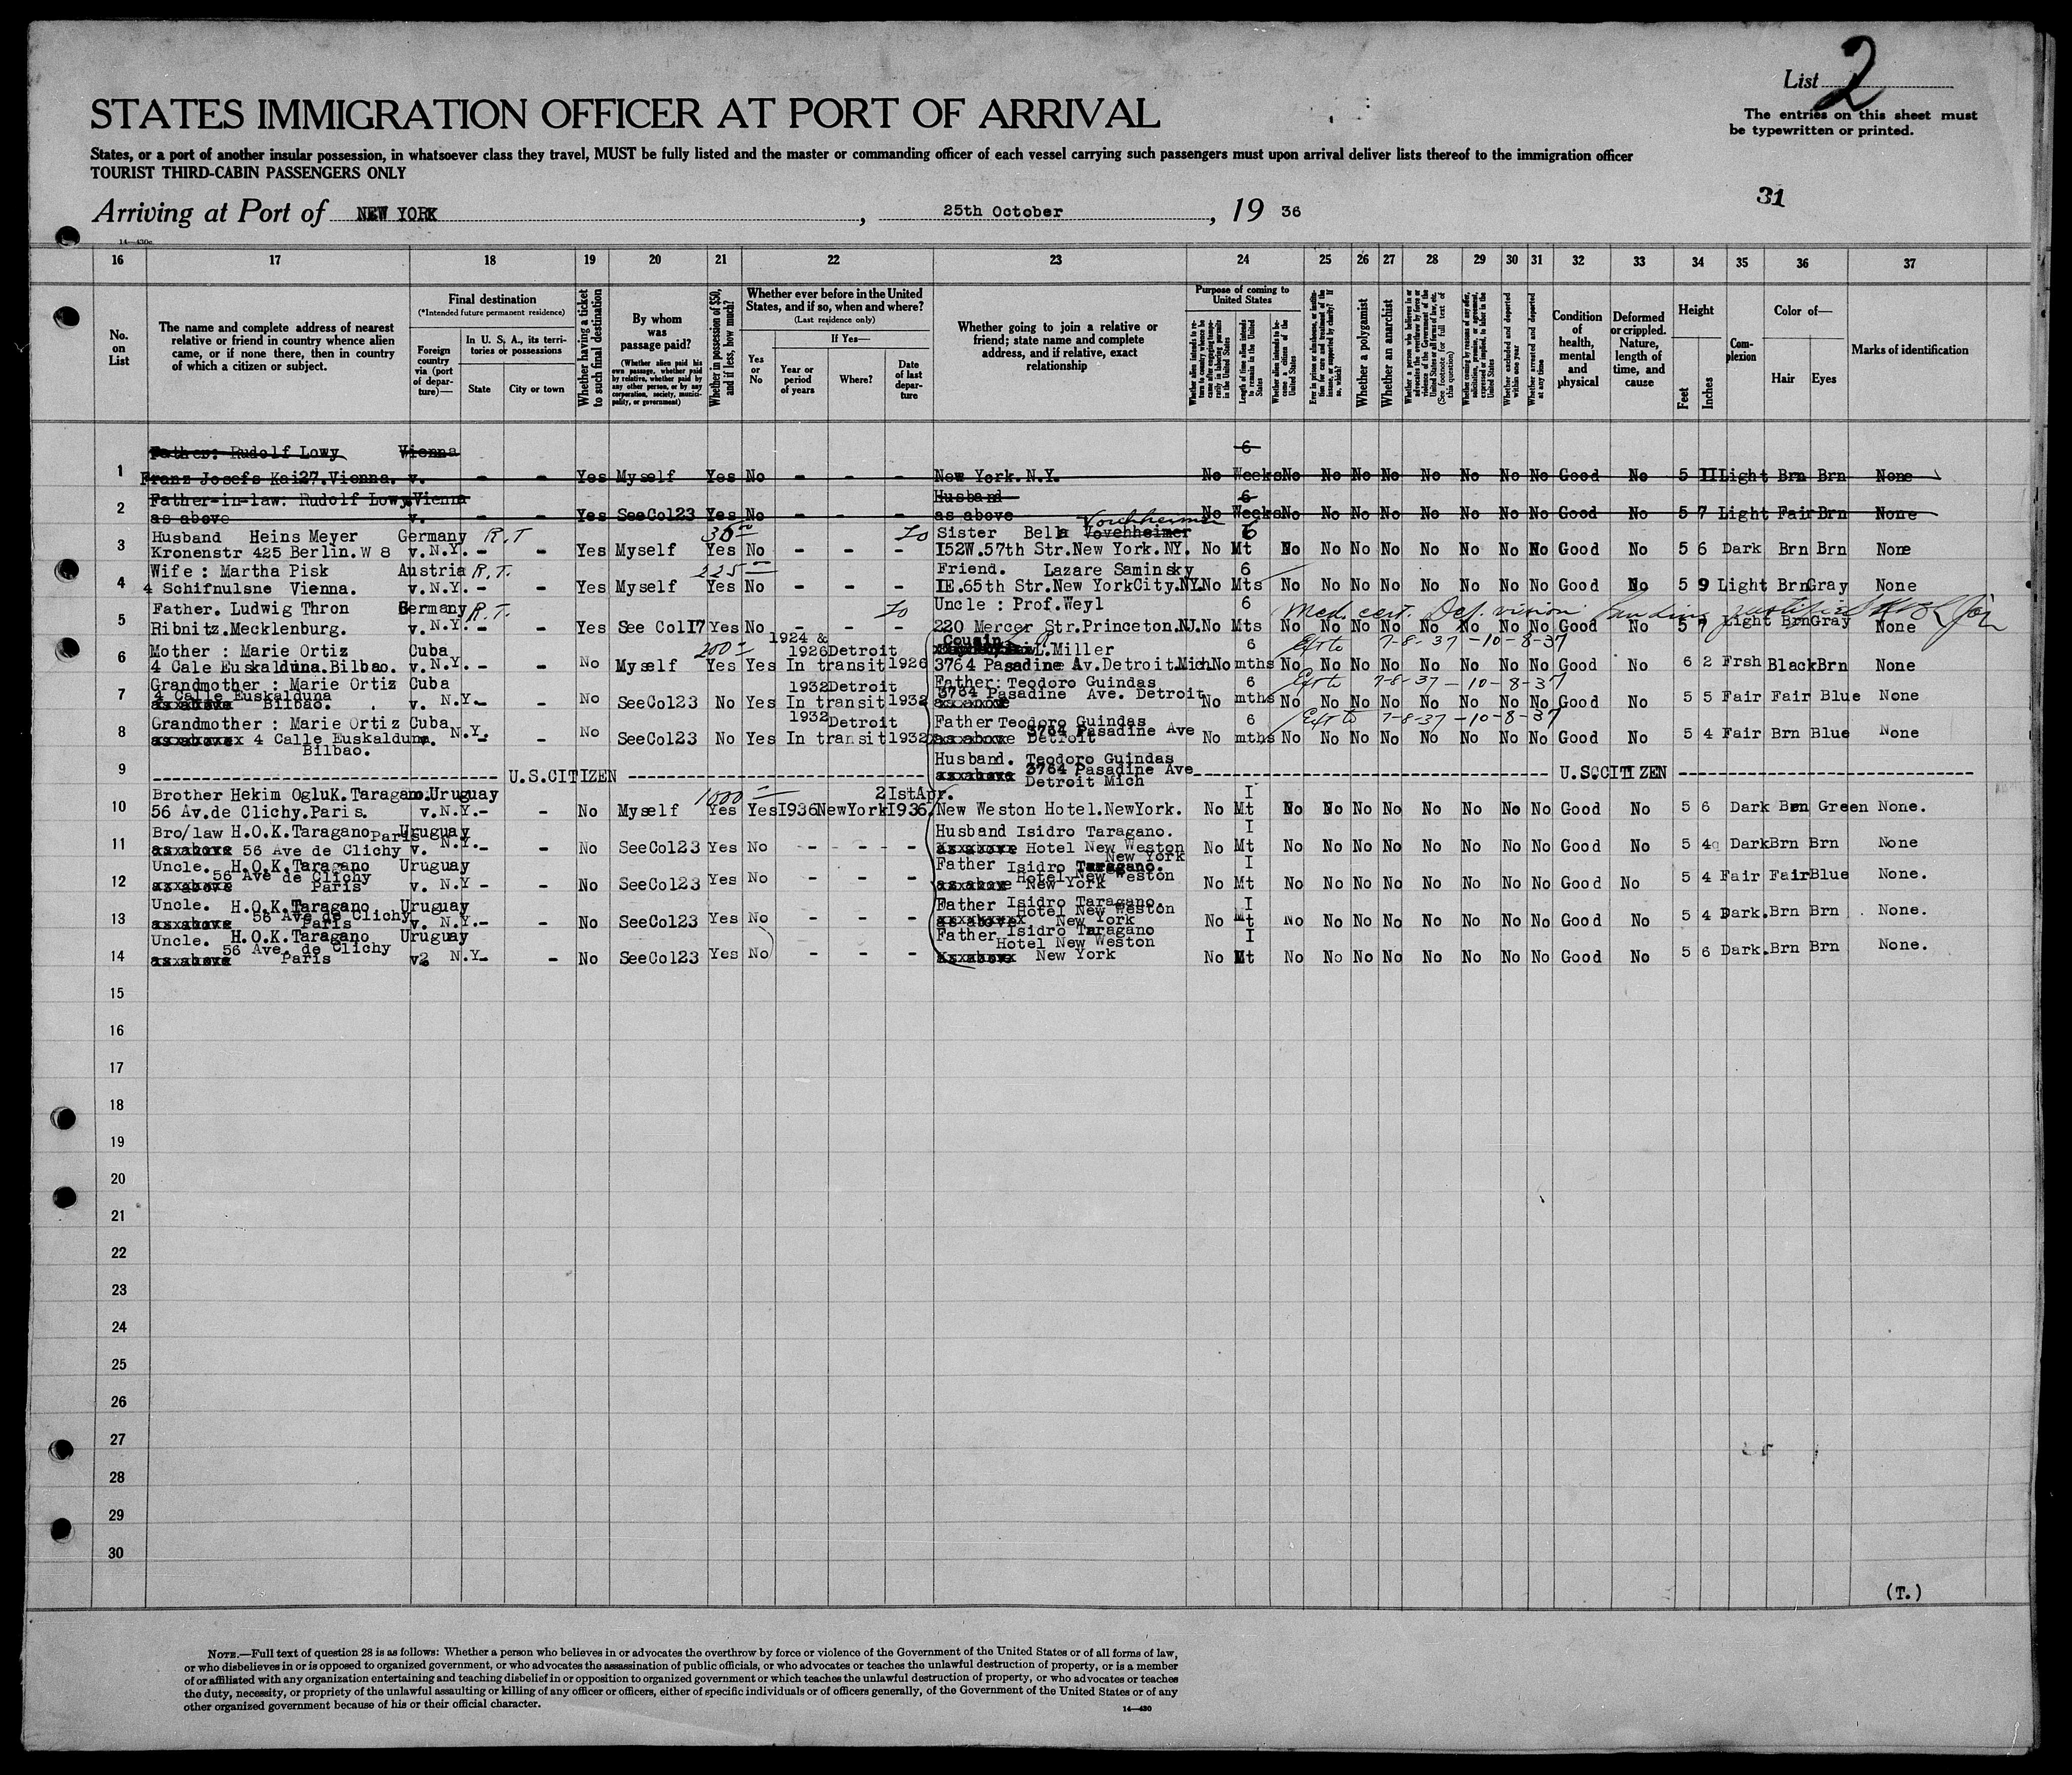 List 2
The entries on this sheet must
be typewritten or printed.
STATES IMMIGRATION OFFICER AT PORT OF ARRIVAL
States, or a port of another insular possession, in whatsoever class they travel, MUST be fully listed and the master or commanding officer of each vessel carrying such passengers must upon arrival deliver lists thereof to the immigration officer
TOURIST THIRD-CABIN PASSENGERS ONLY
31
Arriving at Port of NEW YORK, 25th October, 19 36
16 17 18 19 20 21 22 23 24 25 26 27 28 29 30 31 32 33 34 35 36 37
No. on List
The name and complete address of nearest
relative or friend in country whence alien
came, or if none there, then in country
of which a citizen or subject.
Final destination
(*Intended future permanent residence)
Foreign country via (port of departure)—
In U. S. A., its territories or possessions
State
City or town
Whether having a ticket to such final destination
By whom was passage paid?
(Whether alien paid his own passage, whether paid by relative, whether paid by any other person, or by any corporation, society, municipality, or government)
Whether in possession of $50, and if less, how much?
Whether ever before in the United States, and if so, when and where?
(Last residence only)
Yes or No
If Yes—
Year or period of years
Where?
Date of last departure
Whether going to join a relative or
friend; state name and complete
address, and if relative, exact
relationship
Purpose of coming to United States
Length of time alien intends to remain in the United States
Whether alien intends to become a citizen of the United States
Whether a polygamist
Whether an anarchist
Whether excluded and deported within one year
Whether arrested and deported at any time
Condition of health, mental and physical
Deformed or crippled. Nature, length of time, and cause
Height
Feet
Inches
Complexion
Color of—
Hair
Eyes
Marks of identification
Father: Rudolf Lowy Vienna 6
1 Franz Josefs Kai27.Vienna. v. - - Yes Myself Yes No - - - New York.N.Y. No Weeks No No No No No No No No Good No 5 II Light Brn Brn None
Father-in-law: Rudolf Lowy Vienna Husband 6
2 as above v. - - Yes SeeCol23 Yes No - - - as above No Weeks No No No No No No No No Good No 5 7 Light Fair Brn None
Husband Heins Meyer Germany R.T Sister Bella Vovehheimer 6
3 Kronenstr 425 Berlin.W 8 v.N.Y. - - Yes Myself Yes No - - - I52W.57th Str.New York.NY. No Mt No No No No No No No No Good No 5 6 Dark Brn Brn None
Wife : Martha Pisk Austria R.T. 225 Friend. Lazare Saminsky 6
4 4 Schifnulsne Vienna. v.N.Y. - - Yes Myself Yes No - - - IE.65th Str.New YorkCity.NY. No Mts No No No No No No No No Good No 5 9 Light Brn Gray None
Father. Ludwig Thron Germany R.T. Uncle : Prof.Weyl 6 Med. cert. Def. vision
5 Ribnitz.Mecklenburg. v.N.Y. - - Yes See Col I7 Yes No - - - 220 Mercer Str.Princeton.NJ. No Mts No No No No No No No No Good No 5 7 Light Brn Gray None
Mother : Marie Ortiz Cuba 200 1924 & 1926 Detroit Cousin L.Miller 6 7-8-37-10-8-37
6 4 Cale Euskalduna.Bilbao. v.N.Y. - - No Myself Yes Yes In transit 1926 3764 Pasadine Av.Detroit.Mich. No mths No No No No No No No No Good No 6 2 Frsh Black Brn None
Grandmother : Marie Ortiz Cuba 1932 Detroit Father: Teodoro Guindas 6 7-8-37-10-8-37
4 Calle Euskalduna 3764 Pasadine Ave. Detroit
7 as above Bilbao. v. N.Y. - - No SeeCol23 No Yes In transit 1932 No mths No No No No No No No No Good No 5 5 Fair Fair Blue None
Grandmother : Marie Ortiz Cuba 1932 Detroit Father Teodoro Guindas 6 7-8-37-10-8-37
3764 Pasadine Ave
8 4 Calle Euskalduna. N.Y. - - No SeeCol23 No Yes In transit 1932 as above Detroit No mths No No No No No No No No Good No 5 4 Fair Brn Blue None
Bilbao.
Husband. Teodoro Guindas
9 U.S.CITIZEN as above 3764 Pasadine Ave U.SCCITIZEN
Detroit Mich
Brother Hekim OgluK.Taragano. Uruguay 1000 2IstApr. I
10 56 Av.de Clichy.Paris. v.N.Y.- - No Myself Yes Yes I936 NewYork I936 New Weston Hotel.NewYork. No Mt No No No No No No No No Good No 5 6 Dark Brn Green None.
Bro/law H.O.K.Taragano Paris Uruguay Husband Isidro Taragano. I
11 as above 56 Ave de Clichy v. N.Y.- - No SeeCol23 Yes No - - - Hotel New Weston No Mt No No No No No No No No Good No 5 4 Dark Brn Brn None
New York
Uncle. H.O.K.Taragano Uruguay Father Isidro Taragano. I
56 Ave de Clichy Hotel New Weston
12 as above Paris v. N.Y - - No SeeCol23 Yes No - - - as above New York No Mt No No No No No No No No Good No 5 4 Fair Fair Blue None.
Uncle. H.O.K.Taragano Uruguay Father Isidro Taragano. I
56 Ave de Clichy Hotel New Weston
13 as above Paris v. N.Y.- - No SeeCol23 Yes No - - - New York No Mt No No No No No No No No Good No 5 4 Dark. Brn Brn None.
Uncle. H.O.K.Taragano Uruguay Father Isidro Taragano I
56 Ave. de Clichy Hotel New Weston
14 as above Paris v2 N.Y- - No SeeCol23 Yes No - - - New York No Mt No No No No No No No No Good No 5 6 Dark. Brn Brn None.
15
16
17
18
19
20
21
22
23
24
25
26
27
28
29
30
(T.)
NOTE.—Full text of question 28 is as follows: Whether a person who believes in or advocates the overthrow by force or violence of the Government of the United States or of all forms of law,
or who disbelieves in or is opposed to organized government, or who advocates the assassination of public officials, or who advocates or teaches the unlawful destruction of property, or is a member
of or affiliated with any organization entertaining and teaching disbelief in or opposition to organized government or which teaches the unlawful destruction of property, or who advocates or teaches
the duty, necessity, or propriety of the unlawful assaulting or killing of any officer or officers, either of specific individuals or of officers generally, of the Government of the United States or of any
other organized government because of his or their official character.
14—430